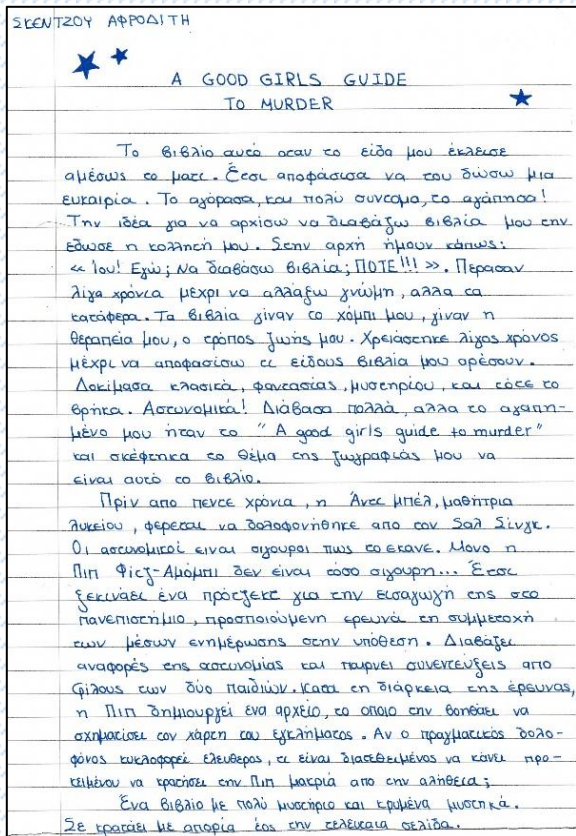 ΣΚΕΝΤΖΟΥ ΑΦΡΟΔΙΤΗ
A GOOD GIRLS GUIDE
TO MURDER
Το βιβλίο αυτό οταν το είδα μου έκλεισε
αμέσως το ματι. Έτσι αποφάσισα να του δώσω μια
ευκαιρία. Το αγόρασα, και πολύ συντομα, το αγάπησα!
Την ιδέα για να αρχίσω να διαβάζω βιβλία μου την
έδωσε η κολλητή μου. Στην αρχή ήμουν κάπως:
«Ιου! Εγώ; Να διαβάσω βιβλία; ΠΟΤΕ!!!». Πέρασαν
λίγα χρόνια μέχρι να αλλάξω γνώμη, αλλα τα
κατάφερα. Τα βιβλία γίναν το χόμπι μου, γίναν η
θεραπεία μου, ο τρόπος ζωής μου. Χρειάστηκε λίγος χρόνος
μέχρι να αποφασίσω τι είδους βιβλία μου αρέσουν.
Δοκίμασα κλασικά, φαντασίας, μυστηρίου, και τότε το
βρήκα. Αστυνομικά! Διάβασα πολλά, αλλα το αγαπη-
μένο μου ήταν το "A good girls guide to murder"
και σκέφτηκα το θέμα της ζωγραφιάς μου να
είναι αυτό το βιβλίο.
Πρίν απο πεντε χρόνια, η Άντι μπέλ, μαθήτρια
λυκείου, φέρεται να δολοφονήθηκε απο τον Σαλ Σίνγκ.
Οι αστυνομικοί ειναι σιγουροι πως το εκανε. Μονο η
Πιπ Φίτζ-Αμόμπι δεν είναι τόσο σιγουρη... Έτσι
ξεκινάει ένα πρότζεκτ για την εισαγωγή της στο
πανεπιστήμιο, προσποιούμενη ερευνά τη συμμετοχή
των μέσων ενημέρωσης στην υπόθεση. Διαβάζει
αναφορές της αστυνομίας και παιρνει συνεντεύξεις απο
φίλους των δύο παιδιών. Κατα τη διάρκεια της έρευνας,
η Πιπ δημιουργεί ενα αρχείο, το οποιο την βοηθάει να
σχηματίσει τον χάρτη του εγκλήματος. Αν ο πραγματικός δολο-
φόνος κυκλοφορεί ελευθερος, τι είναι διατεθειμένος να κάνει προ-
κειμένου να κρατήσει την Πιπ μακριά απο την αλήθεια;
Ενα βιβλίο με πολύ μυστήριο και κρυμένα μυστικά.
Σε κρατάει με απορία έος την τελευταια σελίδα.